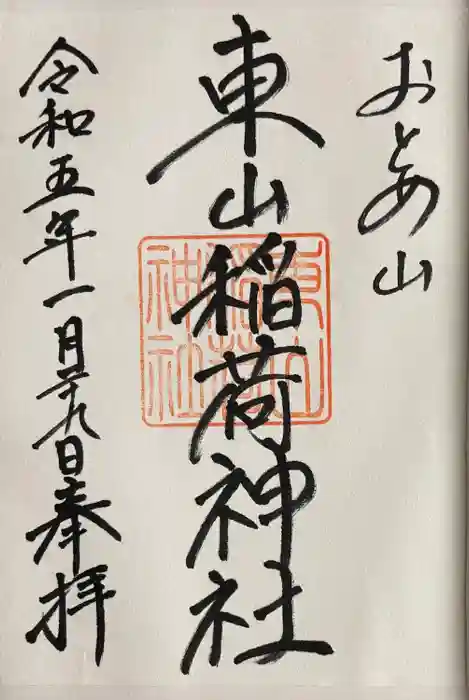 おとめ山
東山稲荷神社
令和五年一月廿九日奉拝
東山稲荷神社